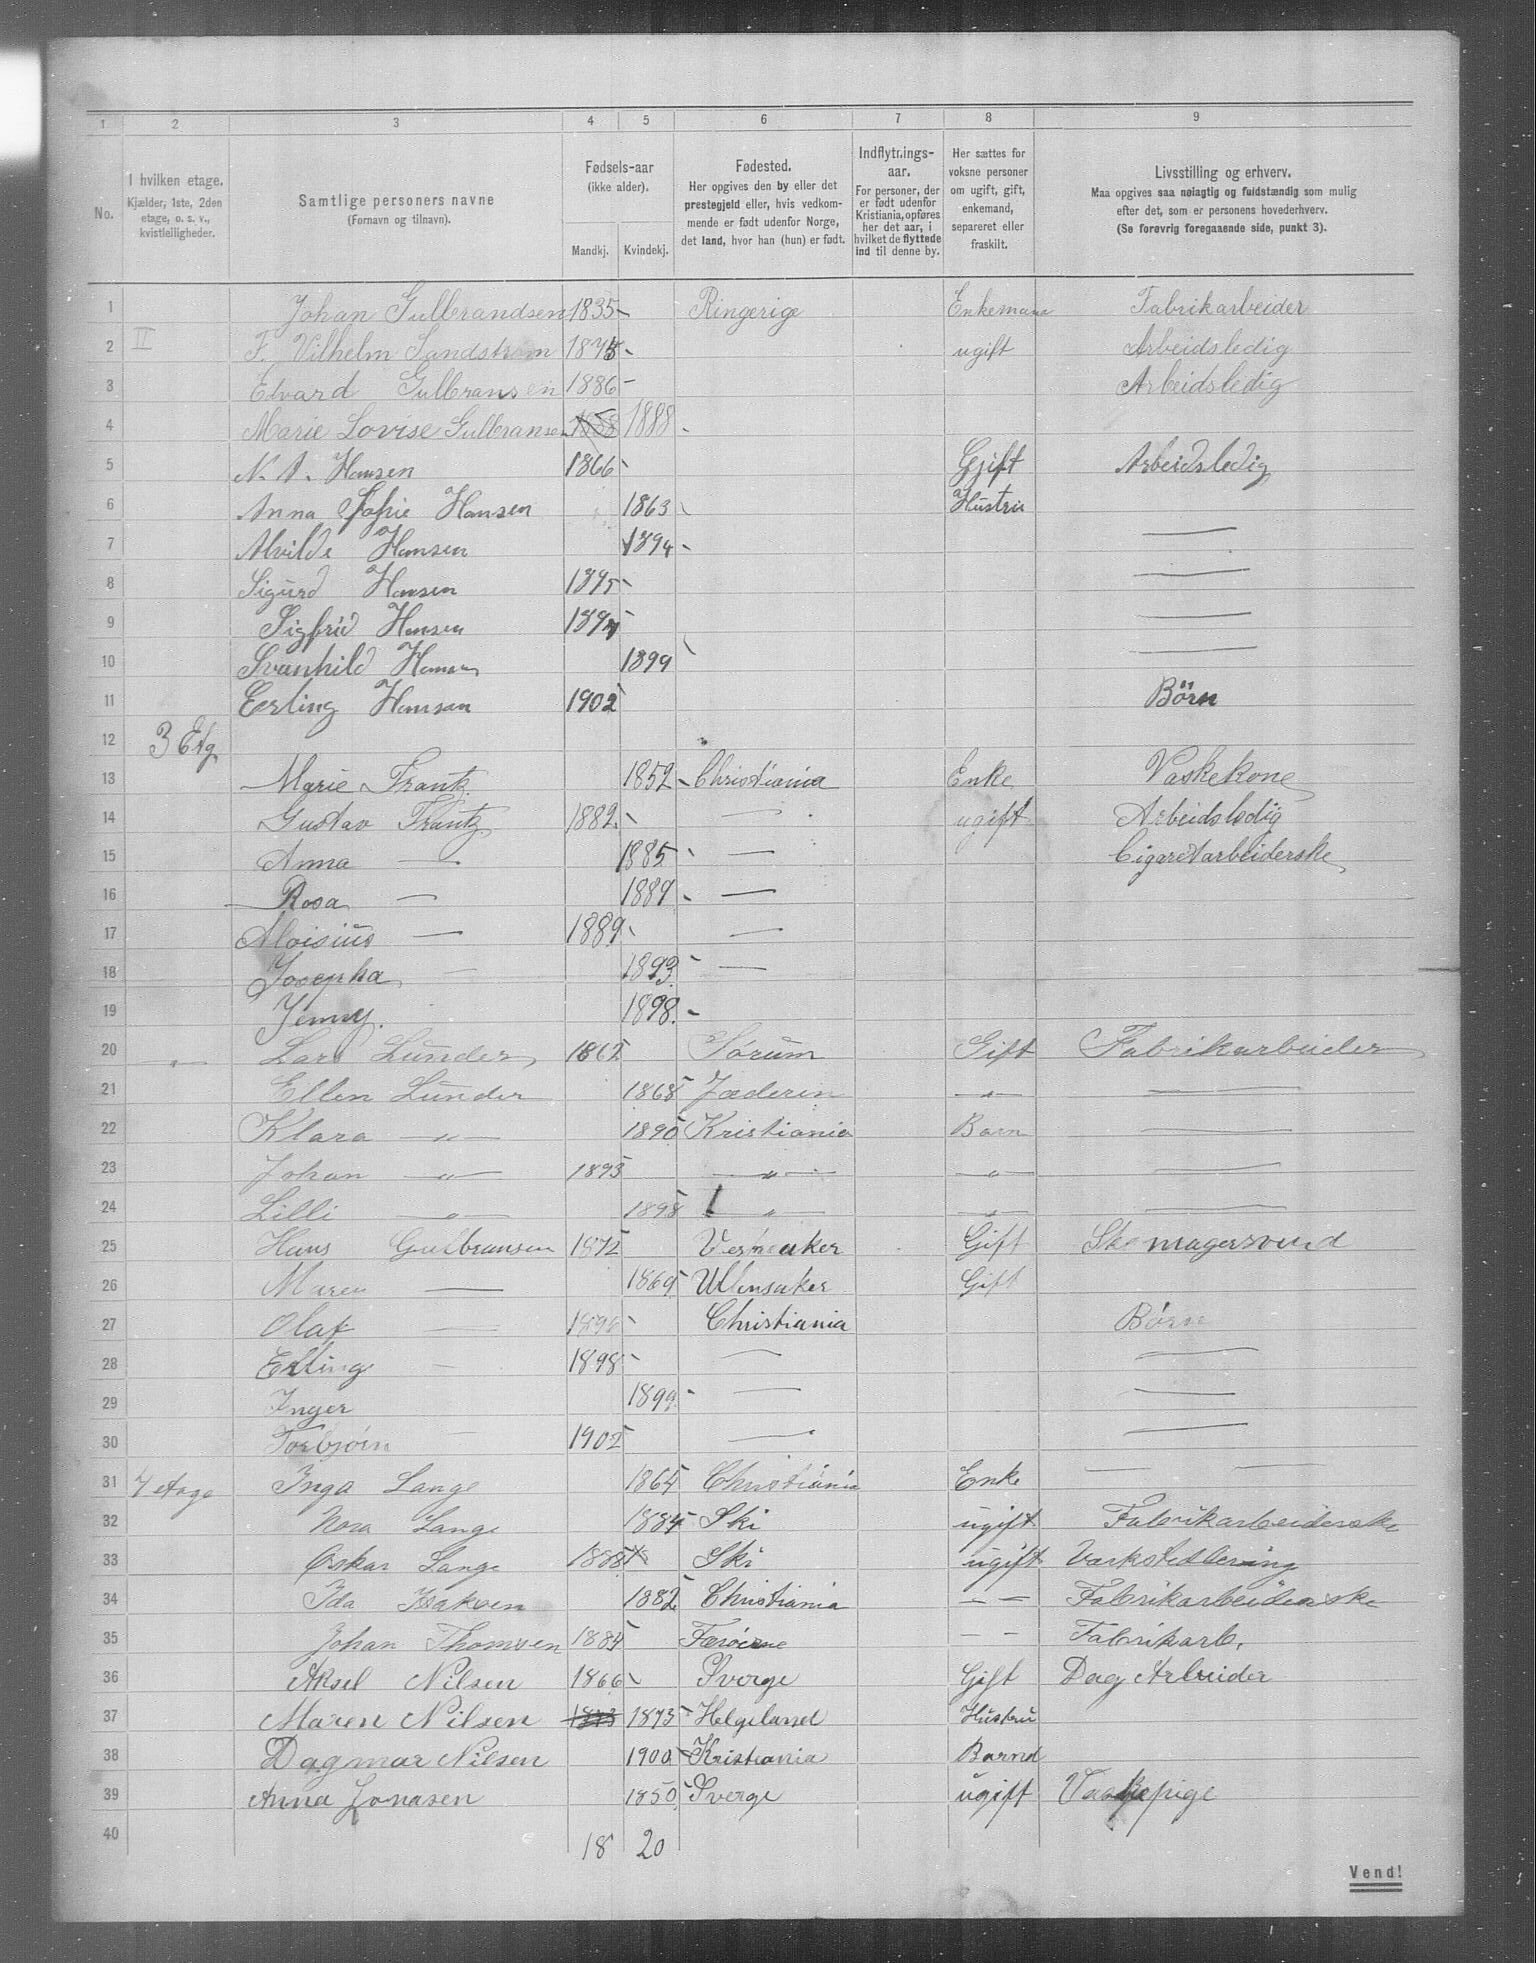 1 2 3 4 5 6 7 8 9
No. I hvilken etage. Kjælder, 1ste, 2den etage, o. s. v., kvistleiligheder. Samtlige personers navne (Fornavn og tilnavn). Fødsels-aar (ikke alder). Mandkj. Kvindekj. Fødested. Her opgives den by eller det prestegjeld eller, hvis vedkommende er født udenfor Norge, det land, hvor han (hun) er født. Indflytnings-aar. For personer, der er født udenfor Kristiania, opføres her det aar, i hvilket de flyttede ind til denne by. Her sættes for voksne personer om ugift, gift, enkemand, separeret eller fraskilt. Livsstilling og erhverv. Maa opgives saa nøiagtig og fuldstændig som mulig efter det, som er personens hovederhverv. (Se forøvrig foregaaende side, punkt 3).
1 Johan Gulbrandsen 1835 - Ringerige Enkemann Fabrikarbeider
2 II F. Vilhelm Sandstrøm - ugift Arbeidsledig
3 Edvard Gulbransen 1886 - Arbeidsledig
4 Marie Lovise Gulbransen 1888 -
5 N. A. Hansen 1866 - Gift Arbeidsledig
6 Anna Sofie Hansen 1863 Hustru
7 Alvilde Hansen 1894 - —
8 Sigurd Hansen 1895 - —
9 Sigfrid Hansen 1897 - —
10 Svanhild Hansen 1899 —
11 Eerling Hansen 1902 Börn
12 3 Etg
13 Marie Frantz 1852 - Christiania Enke Vaskekone
14 Gustav Frantz 1882 - — ugift Arbeidsledig
15 Anna — 1885 — Cigaretarbeiderske
16 Rosa — 1889 - —
17 Aloisius — 1889 - —
18 Josepha — 1893 - —
19 Jenny. 1898. -
20 „ Lars Lunder 1862 Sørum Gift Fabrikarbeider
21 Ellen Lunder 1868 Jæderen — „ — — —
22 Klara — „ — 1890 Kristiania Barn —
23 Johan — „ — 1893 — „ — — „ — —
24 Lilli — „ — 1898 — „ — — „ — —
25 Hans Gulbransen 1872 Vesneaker Gift Skomagersvend
26 Maren — 1869 Ullensaker Gift
27 Olaf — 1896 - Christiania Børn
28 Erling — 1898 - — —
29 Inger 1899 - — —
30 Torbjörn — 1902 — —
31 4 etage Inga Lange 1864 Christiania Enke — —
32 Nora Lange 1884 Ski ugift Fabrikarbeiderske
33 Oskar Lange 1888 Ski ugift Varkstedlæring
34 Ida Isaksen 1882 Christiania — — Fabrikarbeiderske
35 Johan Thomsen 1884 Færöerne — — Fabrikarb.
36 Aksel Nilsen 1866 - Sverge Gift Dag Arbeider
37 Maren Nilsen 1873 1873 Helgeland Hustru
38 Dagmar Nilsen 1900 - Kristiania Barnd
39 Anna Jonasen 1850 Sverge ugift Vaskepige
40 18 20
Vend!